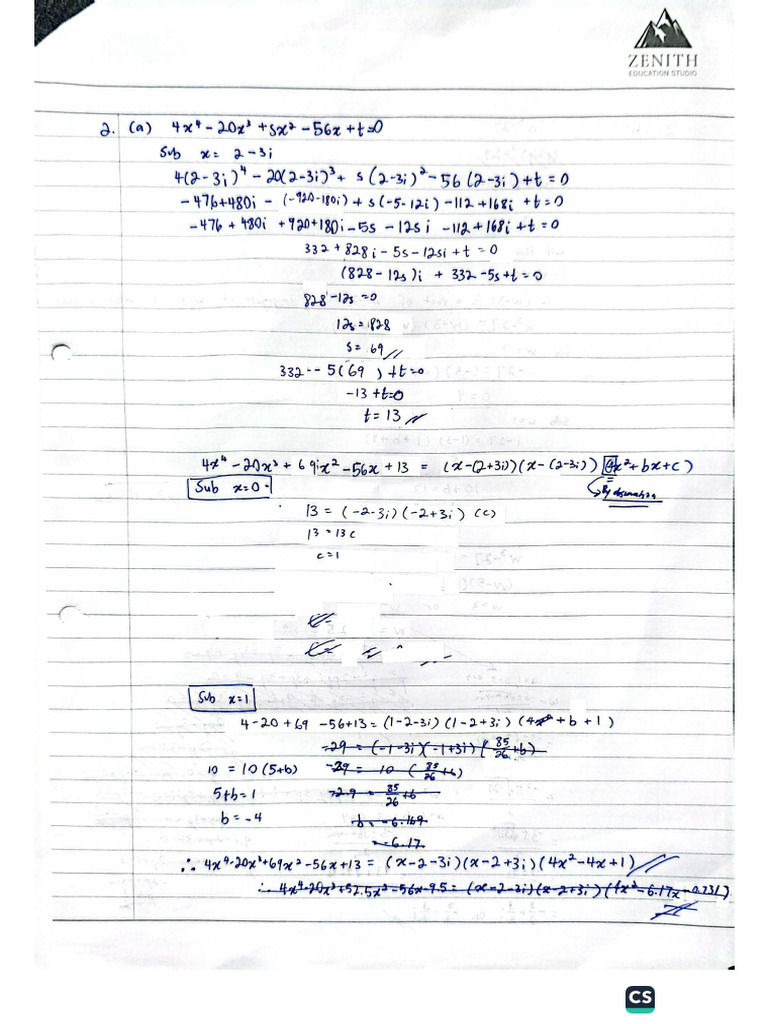 ZENITH
EDUCATION STUDIO
2. (a) 4x⁴ - 20x³ + sx² - 56x + t = 0
Sub x = 2 - 3i
4(2-3i)⁴ - 20(2-3i)³ + s(2-3i)² - 56(2-3i) + t = 0
-476+480i - (-920-180i) + s(-5-12i) - 112 + 168i + t = 0
-476 + 480i + 920+180i - 5s - 12si - 112 + 168i + t = 0
332 + 828i - 5s - 12si + t = 0
(828 - 12s)i + 332 - 5s + t = 0
828 - 12s = 0
12s = 828
s = 69
332 - - 5(69 ) + t = 0
-13 + t = 0
t = 13
4x⁴ - 20x³ + 69x² - 56x + 13 = (x-(2+3i))(x-(2-3i))(4x² + bx + c)
Sub x=0
By observation
13 = (-2-3i)(-2+3i)(c)
13 = 13c
c = 1
Sub x=1
4 - 20 + 69 - 56 + 13 = (1-2-3i)(1-2+3i)(4 + b + 1)
-29 = (-1-3i)(-1+3i)(85/26 + b)
10 = 10(5+b) -29 = 10 (85/26 + b)
5+b = 1 -2.9 = 85/26 + b
b = -4 b = -6.169
= -6.17
∴ 4x⁴ - 20x³ + 69x² - 56x + 13 = (x-2-3i)(x-2+3i)(4x² - 4x + 1)
∴ 4x⁴ - 20x³ + 52.5x² - 56x - 9.5 = (x-2-3i)(x-2+3i)(4x² - 6.17x - 0.731)
CS